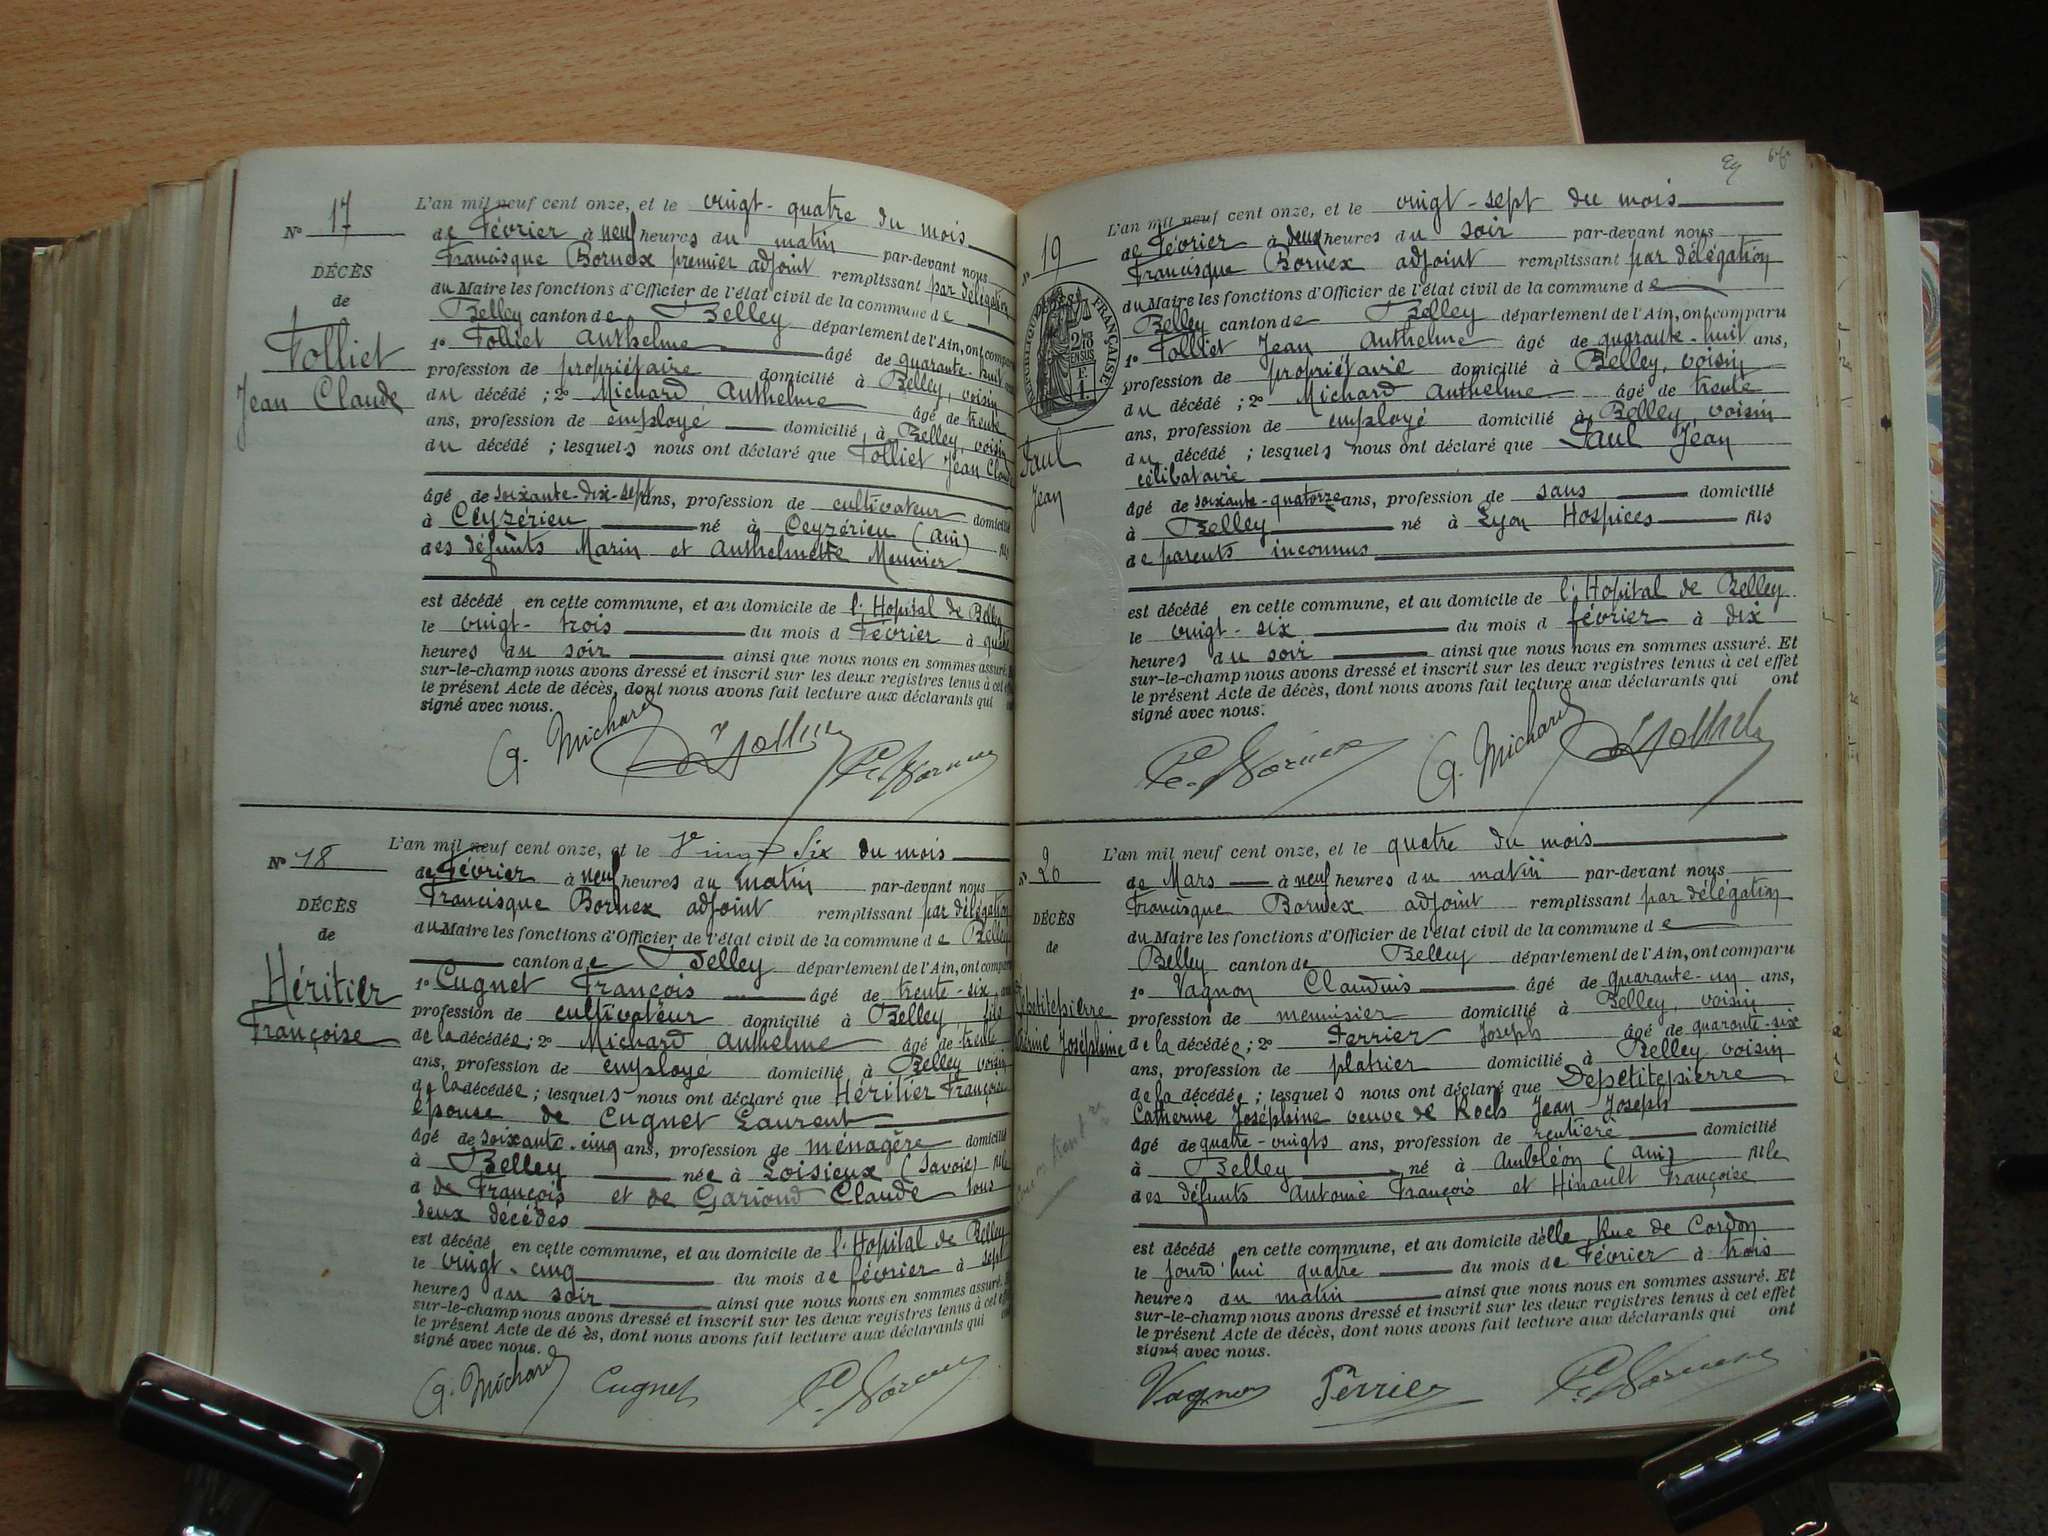 N° 17
DÉCÈS
de
Folliet
Jean Claude
L'an mil neuf cent onze, et le vingt-quatre du mois
de Février à neuf heures du matin par-devant nous
Francisque Bornex premier adjoint remplissant par délégation
du Maire les fonctions d'Officier de l'état civil de la commune de
Belley canton de Belley département de l'Ain, ont comparu
1° Folliet Anthelme âgé de quarante-huit ans
profession de propriétaire domicilié à Belley, voisin
du décédé ; 2° Michard Anthelme âgé de trente
ans, profession de employé domicilié à Belley, voisin
du décédé ; lesquels nous ont déclaré que Folliet Jean Claude
âgé de soixante-dix-sept ans, profession de cultivateur domicilié
à Ceyzérieu né à Ceyzérieu (Ain) fils
des défunts Marin et Anthelmette Meunier
est décédé en cette commune, et au domicile de l'Hopital de Belley
le vingt-trois du mois d Février à quatre
heures du soir ainsi que nous nous en sommes assuré. Et
sur-le-champ nous avons dressé et inscrit sur les deux registres tenus à cet effet
le présent Acte de décès, dont nous avons fait lecture aux déclarants qui
signé avec nous.
A. Michard
N° 18
DÉCÈS
de
Héritier
Françoise
L'an mil neuf cent onze, et le Vingt Six du mois
de Février à neuf heures du matin par-devant nous
Francisque Bornex adjoint remplissant par délégation
du Maire les fonctions d'Officier de l'état civil de la commune de Belley
canton de Belley département de l'Ain, ont comparu
1° Cugnet François âgé de trente-six ans
profession de cultivateur domicilié à Belley fils
de la décédée ; 2° Michard Anthelme âgé de trente
ans, profession de employé domicilié à Belley voisin
de la décédée ; lesquels nous ont déclaré que Héritier Françoise
épouse de Cugnet Laurent
âgé de soixante-cinq ans, profession de ménagère domicilié
à Belley née à Loisieux (Savoie) fille
d de François et de Gariond Claude tous
deux décédés
est décédé en cette commune, et au domicile de l'Hopital de Belley
le vingt-cinq du mois de février à sept
heures du soir ainsi que nous nous en sommes assuré.
sur-le-champ nous avons dressé et inscrit sur les deux registres tenus à cet effet
le présent Acte de dé ès, dont nous avons fait lecture aux déclarants qui
signé avec nous.
A. Michard Cugnet
N° 19
RÉPUBLIQUE FRANÇAISE
Paul
Jean
L'an mil neuf cent onze, et le vingt-sept du mois
de Février à deux heures du soir par-devant nous
Francisque Bornex adjoint remplissant par délégation
du Maire les fonctions d'Officier de l'état civil de la commune de
Belley canton de Belley département de l'Ain, ont comparu
1° Folliet Jean Anthelme âgé de quarante-huit ans,
profession de propriétaire domicilié à Belley, voisin
du décédé ; 2° Michard Anthelme âgé de trente
ans, profession de employé domicilié à Belley, voisin
du décédé ; lesquels nous ont déclaré que Paul Jean
célibataire
âgé de soixante-quatorze ans, profession de sans domicilié
à Belley né à Lyon Hospices fils
de parents inconnus
est décédé en cette commune, et au domicile de l'Hopital de Belley
le vingt-six du mois d février à dix
heures du soir ainsi que nous nous en sommes assuré. Et
sur-le-champ nous avons dressé et inscrit sur les deux registres tenus à cet effet
le présent Acte de décès, dont nous avons fait lecture aux déclarants qui ont
signé avec nous.
A. Michard
N° 20
DÉCÈS
de
Depetitepierre
Joséphine
L'an mil neuf cent onze, et le quatre du mois
de Mars à neuf heures du matin par-devant nous
Francisque Bornex adjoint remplissant par délégation
du Maire les fonctions d'Officier de l'état civil de la commune de
Belley canton de Belley département de l'Ain, ont comparu
1° Vagnon Claudius âgé de quarante-un ans,
profession de menuisier domicilié à Belley, voisin
de la décédée ; 2° Ferrier Joseph âgé de quarante-six
ans, profession de platrier domicilié à Belley voisin
de la décédée ; lesquels nous ont déclaré que Depetitepierre
Catherine Joséphine veuve de Rochs Jean-Joseph
âgé de quatre-vingts ans, profession de rentière domicilié
à Belley né à Ambléon (Ain) fille
des défunts Antoine François et Hinault Françoise
est décédé en cette commune, et au domicile d'elle Rue de Cordon
le jourd'hui quatre du mois de Février à trois
heures du matin ainsi que nous nous en sommes assuré. Et
sur-le-champ nous avons dressé et inscrit sur les deux registres tenus à cet effet
le présent Acte de décès, dont nous avons fait lecture aux déclarants qui ont
signé avec nous.
Vagnon Ferrier